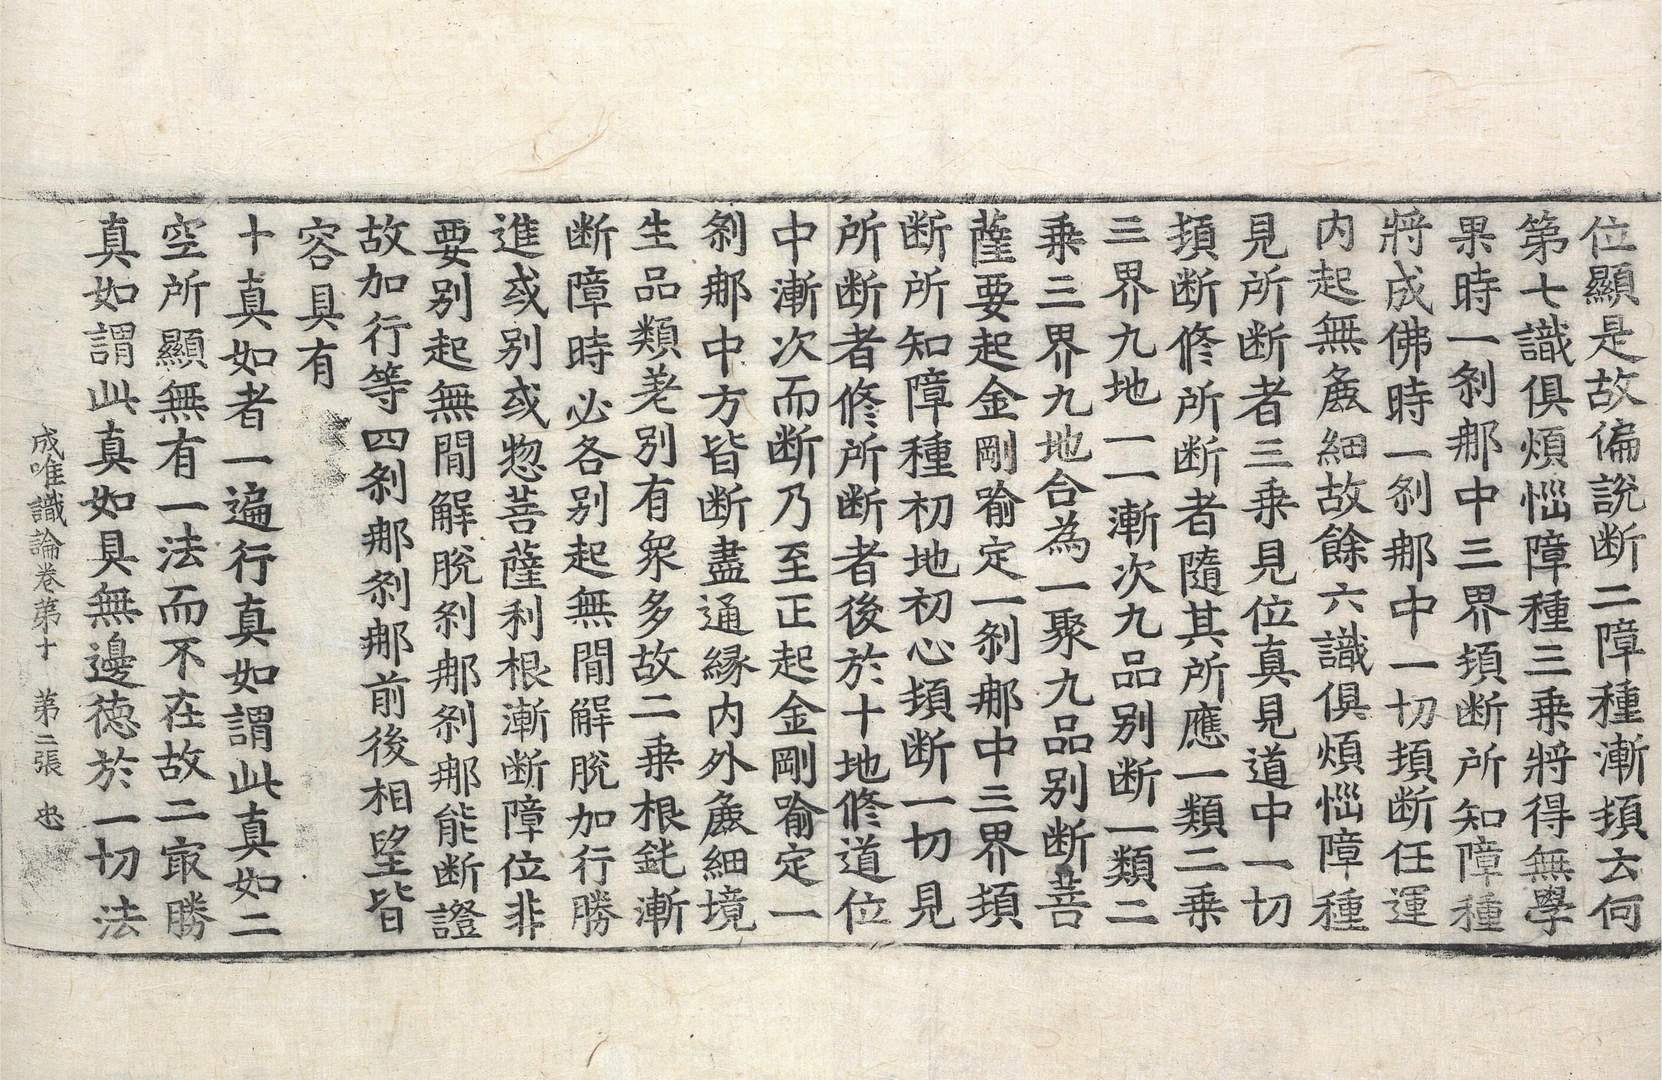 位顯是故偏說断二障種漸頓云何
第七識俱煩惱障種三乗將得無學
果時一剎郍中三界頓断所知障種
將成佛時一剎郍中一切頓断任運
内起無麁細故餘六識俱煩惱障種
見所断者三乗見位真見道中一切
頓断修所断者隨其所應一類二乗
三界九地一一漸次九品别断一類二
乗三界九地合為一聚九品别断菩
薩要起金剛喻定一剎郍中三界頓
断所知障種初地初心頓断一切見
所断者修所断者後於十地修道位
中漸次而断乃至正起金剛喻定一
剎郍中方皆断盡通縁内外麁細境
生品類差别有衆多故二乗根鈍漸
断障時必各别起無間解脫加行勝
進或别或惣菩薩利根漸断障位非
要别起無間解脫剎郍剎郍能断證
故加行等四剎郍剎郍前後相望皆
容具有
十真如者一遍行真如謂此真如二
空所顯無有一法而不在故二冣勝
真如謂此真如具無邊徳於一切法
成唯識論卷第十　第二張　忠